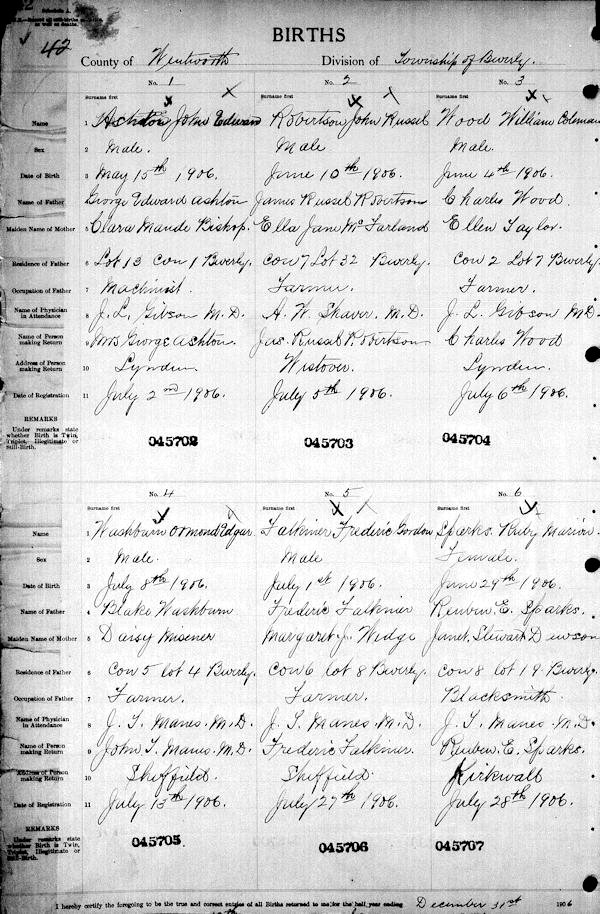 Schedule A.
42
BIRTHS
County of Wentworth Division of Township of Beverly.
No. 1 No. 2 No. 3
Surname first Surname first Surname first
Name 1 Ashton John Edward Robertson John Russel Wood William Coleman
Sex 2 Male. Male Male.
Date of Birth 3 May 15th 1906. June 10th 1906. June 4th 1906.
Name of Father 4 George Edward Ashton James Russel Robertson Charles Wood.
Maiden Name of Mother 5 Clara Maude Bishop. Ella Jane McFarland Ellen Taylor.
Residence of Father 6 Lot 13 Con 1 Beverly. Con 7 Lot 32 Beverly. Con 2 Lot 7 Beverly.
Occupation of Father 7 Machinist. Farmer. Farmer.
Name of Physician in Attendance 8 J. L. Gibson M.D. A. W. Shaver. M.D. J. L. Gibson M.D.
Name of Person making Return 9 Mrs George Ashton. Jas. Russel Robertson Charles Wood
Address of Person making Return 10 Lynden Westover. Lynden.
Date of Registration 11 July 2nd 1906. July 5th 1906. July 6th 1906.
REMARKS
Under remarks state whether Birth is Twin, Triplet, Illegitimate or Still-Birth.
045702 045703 045704
No. 4 No. 5 No. 6
Surname first Surname first Surname first
Name 1 Washburn Ormond Edgar Falkiner Frederic Gordon Sparks. Ruby Marion.
Sex 2 Male. Male Female.
Date of Birth 3 July 8th 1906. July 1st 1906. June 29th 1906.
Name of Father 4 Blake Washburn Frederic Falkiner Reuben E. Sparks.
Maiden Name of Mother 5 Daisy Misener Margaret J. Wedge Janet Stewart Dewson
Residence of Father 6 Con 5 lot 4 Beverly. Con 6 lot 8 Beverly. Con 8 lot 19. Beverly.
Occupation of Father 7 Farmer. Farmer. Blacksmith.
Name of Physician in Attendance 8 J. T. Manes. M.D. J. T. Manes. M.D. J. T. Manes. M.D.
Name of Person making Return 9 John T. Manes. M.D. Frederic Falkiner. Reuben. E. Sparks.
Address of Person making Return 10 Sheffield. Sheffield. Kirkwall
Date of Registration 11 July 13th 1906. July 27th 1906. July 28th 1906.
REMARKS
Under remarks state whether Birth is Twin, Triplet, Illegitimate or Still-Birth.
045705 045706 045707
I hereby certify the foregoing to be the true and correct entries of all Births returned to me for the half year ending December 31st 1906